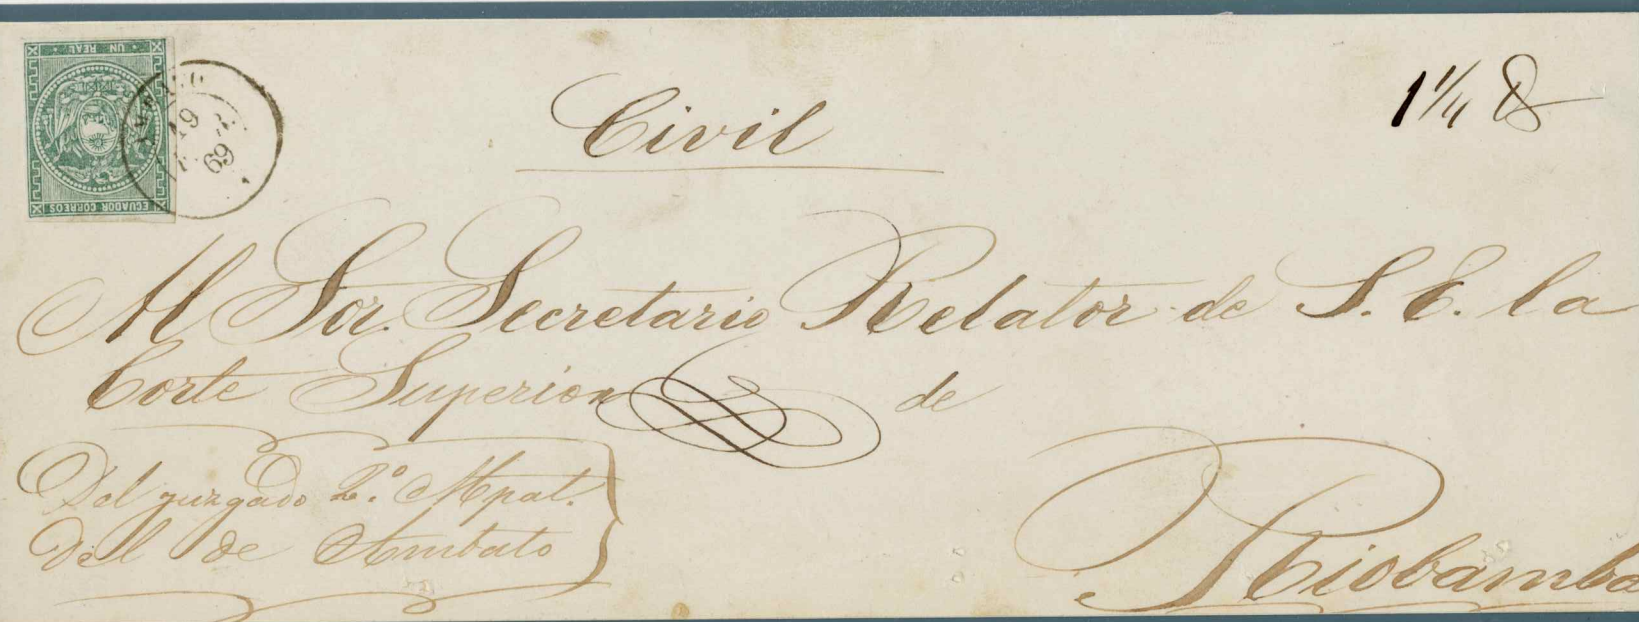 UN REAL
ECUADOR CORREOS
19
69
Civil
1 1/4
Al Sor. Secretario Relator de S. E. la
Corte Superior de
Del juzgado 2.º Mpal.
Del de Ambato
Riobamba